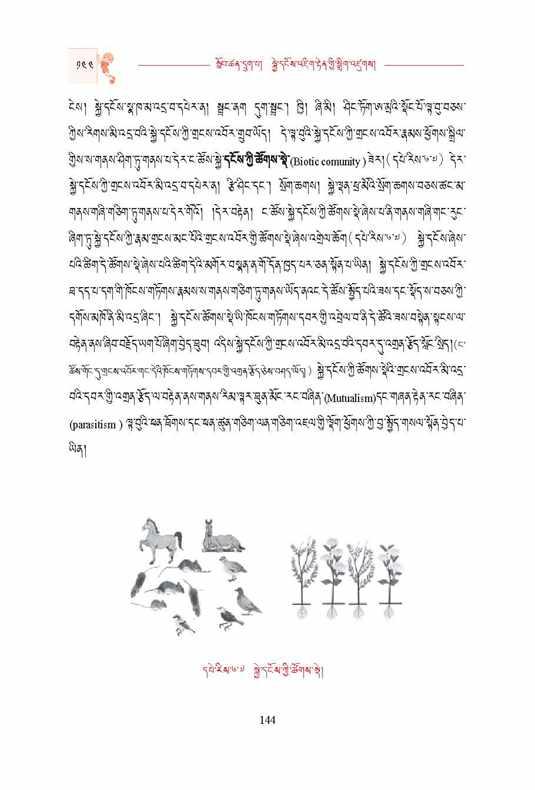 ༡༤༤ སློབ་ཚན་དྲུག་པ། སྐྱེ་དངོས་འཇིག་རྟེན་གྱི་སྒྲིག་འཛུགས།
ངེས། སྐྱེ་དངོས་སྣ་ཁ་མི་འདྲ་བ་དཔེར་ན། སྦྲང་ནག དུག་སྦྲང་། ཁྱི། ཞི་མི། ཤིང་ཏོག་ཨ་མྲའི་སྡོང་པོ་ལྟ་བུ་བཅས་
ཀྱིས་རིགས་མི་འདྲ་བའི་སྐྱེ་དངོས་ཀྱི་གྲངས་འབོར་གྲུབ་ཡོད། དེ་ལྟ་བུའི་སྐྱེ་དངོས་ཀྱི་གྲངས་འབོར་རྣམས་ཕྱོགས་སྒྲིལ་
གྱིས་ས་གནས་ཤིག་ཏུ་གནས་པ་དེར་ང་ཚོས་སྐྱེ་དངོས་ཀྱི་ཚོགས་སྡེ་(Biotic comunity) ཟེར། (དཔེ་རིས་༦་༧) དེར་
སྐྱེ་དངོས་ཀྱི་གྲངས་འབོར་མི་འདྲ་བ་དཔེར་ན། རྩི་ཤིང་དང་། སྲོག་ཆགས། སྐྱེ་ལྡན་ཕྲ་མོའི་སྲོག་ཆགས་བཅས་ཚང་མ་
གནས་གཞི་གཅིག་ཏུ་གནས་པ་དེར་གོའོ། །དེར་བརྟེན། ང་ཚོས་སྐྱེ་དངོས་ཀྱི་ཚོགས་སྡེ་ཞེས་པ་ནི་གནས་གཞི་གང་རུང་
ཞིག་ཏུ་སྐྱེ་དངོས་ཀྱི་རྣམ་གྲངས་མང་པོའི་གྲངས་འབོར་གྱི་ཚོགས་སྡེ་ཞེས་འགྲེལ་ཆོག (དཔེ་རིས་༦་༧) སྐྱེ་དངོས་ཞེས་
པའི་ཚིག་དེ་ཚོགས་སྡེ་ཞེས་པའི་ཚིག་དེའི་མགོར་བསྣན་ན་གོ་དོན་ཁྱད་པར་ཅན་སྟོན་པ་ཡིན། སྐྱེ་དངོས་ཀྱི་གྲངས་འབོར་
ཐ་དད་པ་དག་གི་ཁོངས་གཏོགས་རྣམས་ས་གནས་གཅིག་ཏུ་གནས་ཡོད་ནའང་དེ་ཚོས་སྤྱོད་པའི་ཟས་དང་སྡོད་ས་བཅས་ཀྱི་
དགོས་མཁོ་ནི་མི་འདྲ་ཞིང་། སྐྱེ་དངོས་ཚོགས་སྡེ་ཡི་ཁོངས་གཏོགས་དབར་གྱི་འབྲེལ་བ་ནི་དེ་ཚོའི་ཟས་བསྟེན་སྟངས་ལ་
བརྟེན་ནས་ཞིབ་བརྗོད་ཡག་པོ་ཞིག་བྱེད་ཐུབ། འདིས་སྐྱེ་དངོས་ཀྱི་གྲངས་འབོར་མི་འདྲ་བའི་དབར་དུ་འགྲན་རྩོད་སློང་སྲིད། (ང་
ཚོས་གོང་དུ་གྲངས་འབོར་གང་དེའི་ཁོངས་གཏོགས་དབར་གྱི་འགྲན་རྩོད་ཙམ་བཤད་ཡོད།) སྐྱེ་དངོས་ཀྱི་ཚོགས་སྡེའི་གྲངས་འབོར་མི་འདྲ་
བའི་དབར་གྱི་འགྲན་རྩོད་ལ་བརྟེན་ནས་གནས་རིམ་ལྟར་ཐུན་མོང་རང་བཞིན་(Mutualism)དང་གཞན་རྟེན་རང་བཞིན་
(parasitism ) ལྟ་བུའི་ཕན་ཐོགས་དང་ཕན་ཚུན་གཅིག་ལན་གཅིག་འཇལ་གྱི་ལྡོག་ཕྱོགས་ཀྱི་བྱ་སྤྱོད་གསལ་སྟོན་བྱེད་པ་
ཡིན།
དཔེ་རིས་༦་༧ སྐྱེ་དངོས་ཀྱི་ཚོགས་སྡེ།
144